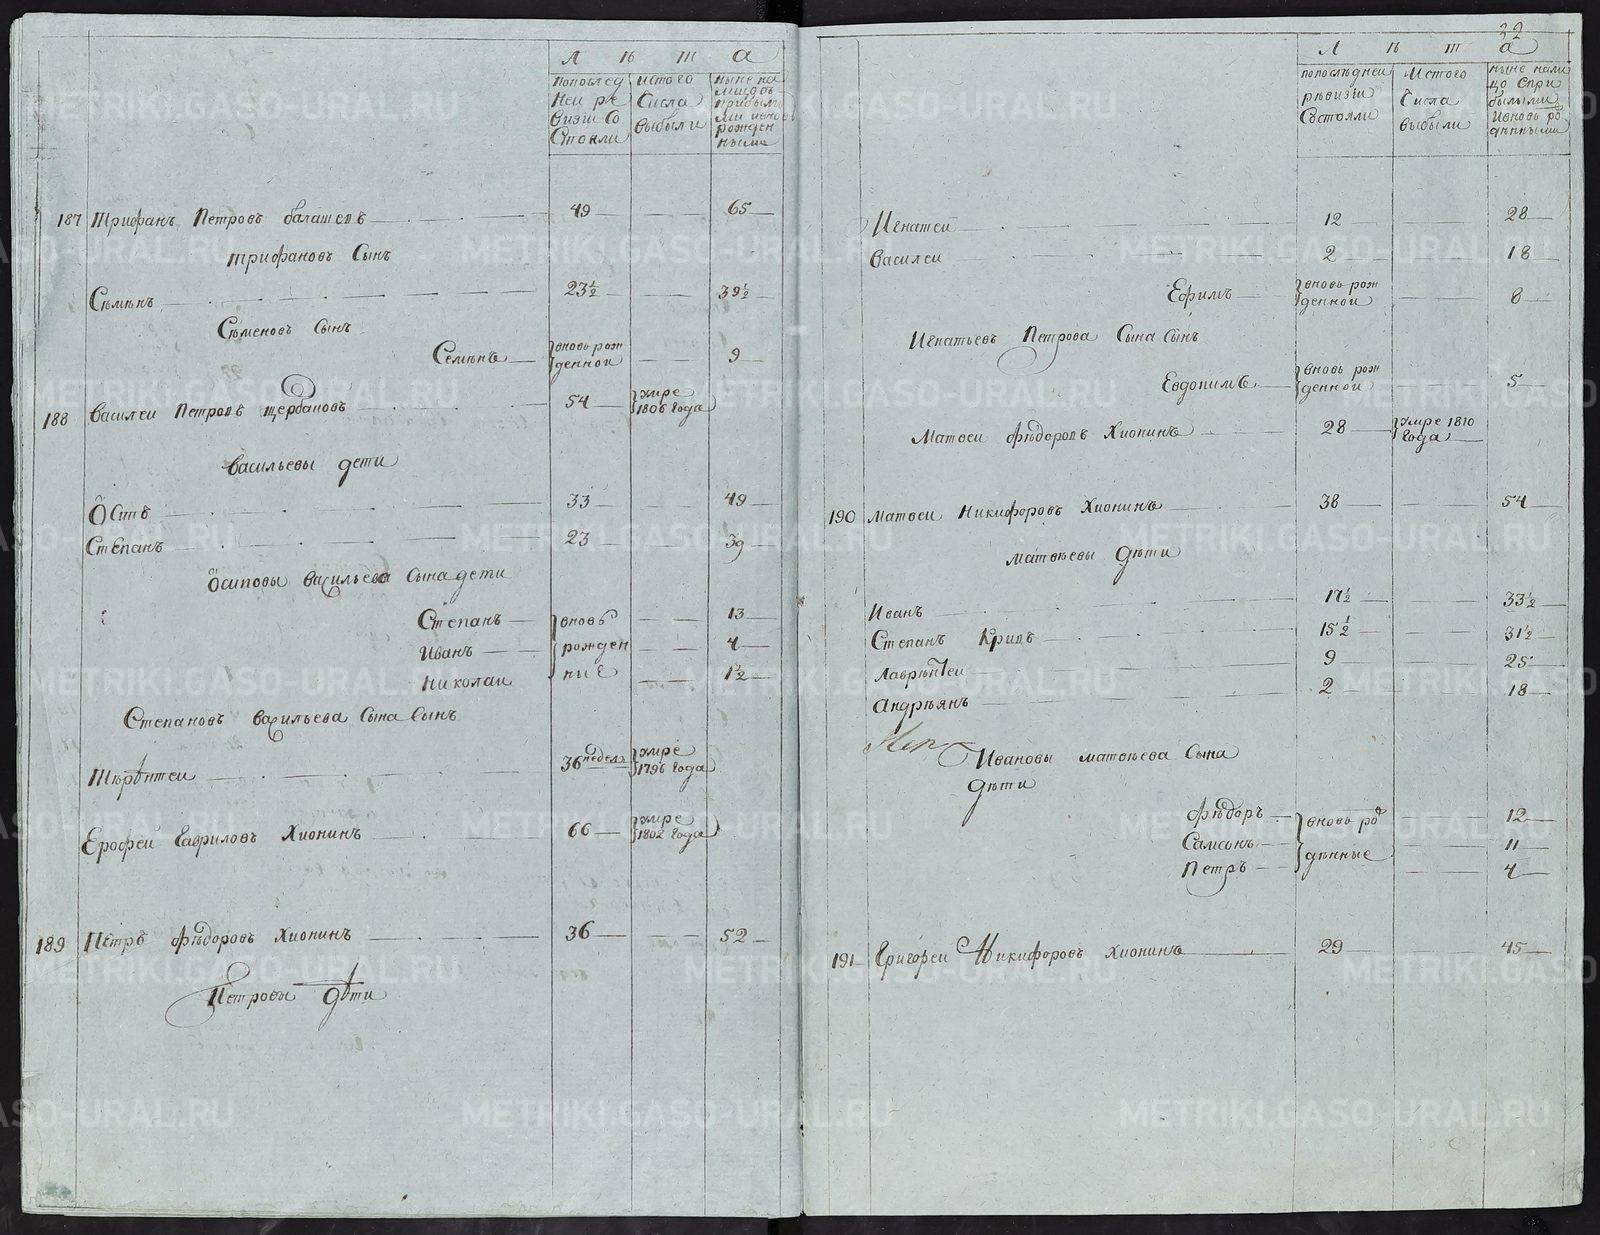 Л ѣ т а
попослѣд ней ре визіи со стояли
истого числа выбыли
ныне на лицо съ прибылы ми ивновь рожден ными
187 Трифанъ Петровъ балашевъ 49 65
трифановъ Сынъ
Сѣмѣнъ 23½ 39½
Сѣменовъ Сынъ
Семѣнъ вновь рож денной 9
188 Василеи Петровъ щербаковъ 54 умре 1806 года
Васильевы дети
Осипъ 33 49
Степанъ 23 39
Осиповы Васильева Сына дети
Степанъ вновь 13
Иванъ рожден 4
Николаи ние 1½
Степановъ Васильева Сына Сынъ
Терѣнтеи 36 недель умре 1796 года
Ерофеи Гавриловъ Хионинъ 66 умре 1802 года
189 Петръ Фѣдоровъ Хионинъ 36 52
Петровы дѣти
32
Л ѣ т а
попослѣдней рѣвизіи Состояли
Истого Числа выбыли
ныне нали цо Спри былыми ивновь ро жденными
Игнатеи 12 28
Василеи 2 18
Ефимъ вновь рож денной 8
Игнатьевъ Петрова Сына Сынъ
Евдокимъ вновь рож денной 5
Матвеи Фѣдоровъ Хионинъ 28 умре 1810 года
190 Матвеи Никифоровъ Хионинъ 38 54
Матвѣевы Дѣти
Иванъ 17½ 33½
Степанъ Кривъ 15½ 31½
Лаврѣнтеи 9 25
Андрѣянъ 2 18
Ивановы матвѣева Сына
дѣти
Фѣдоръ вновь рож 12
Самсонъ 11
Петръ дѣнные 4
191 Григореи Никифоровъ Хионинъ 29 45
METRIKI.GASO-URAL.RU